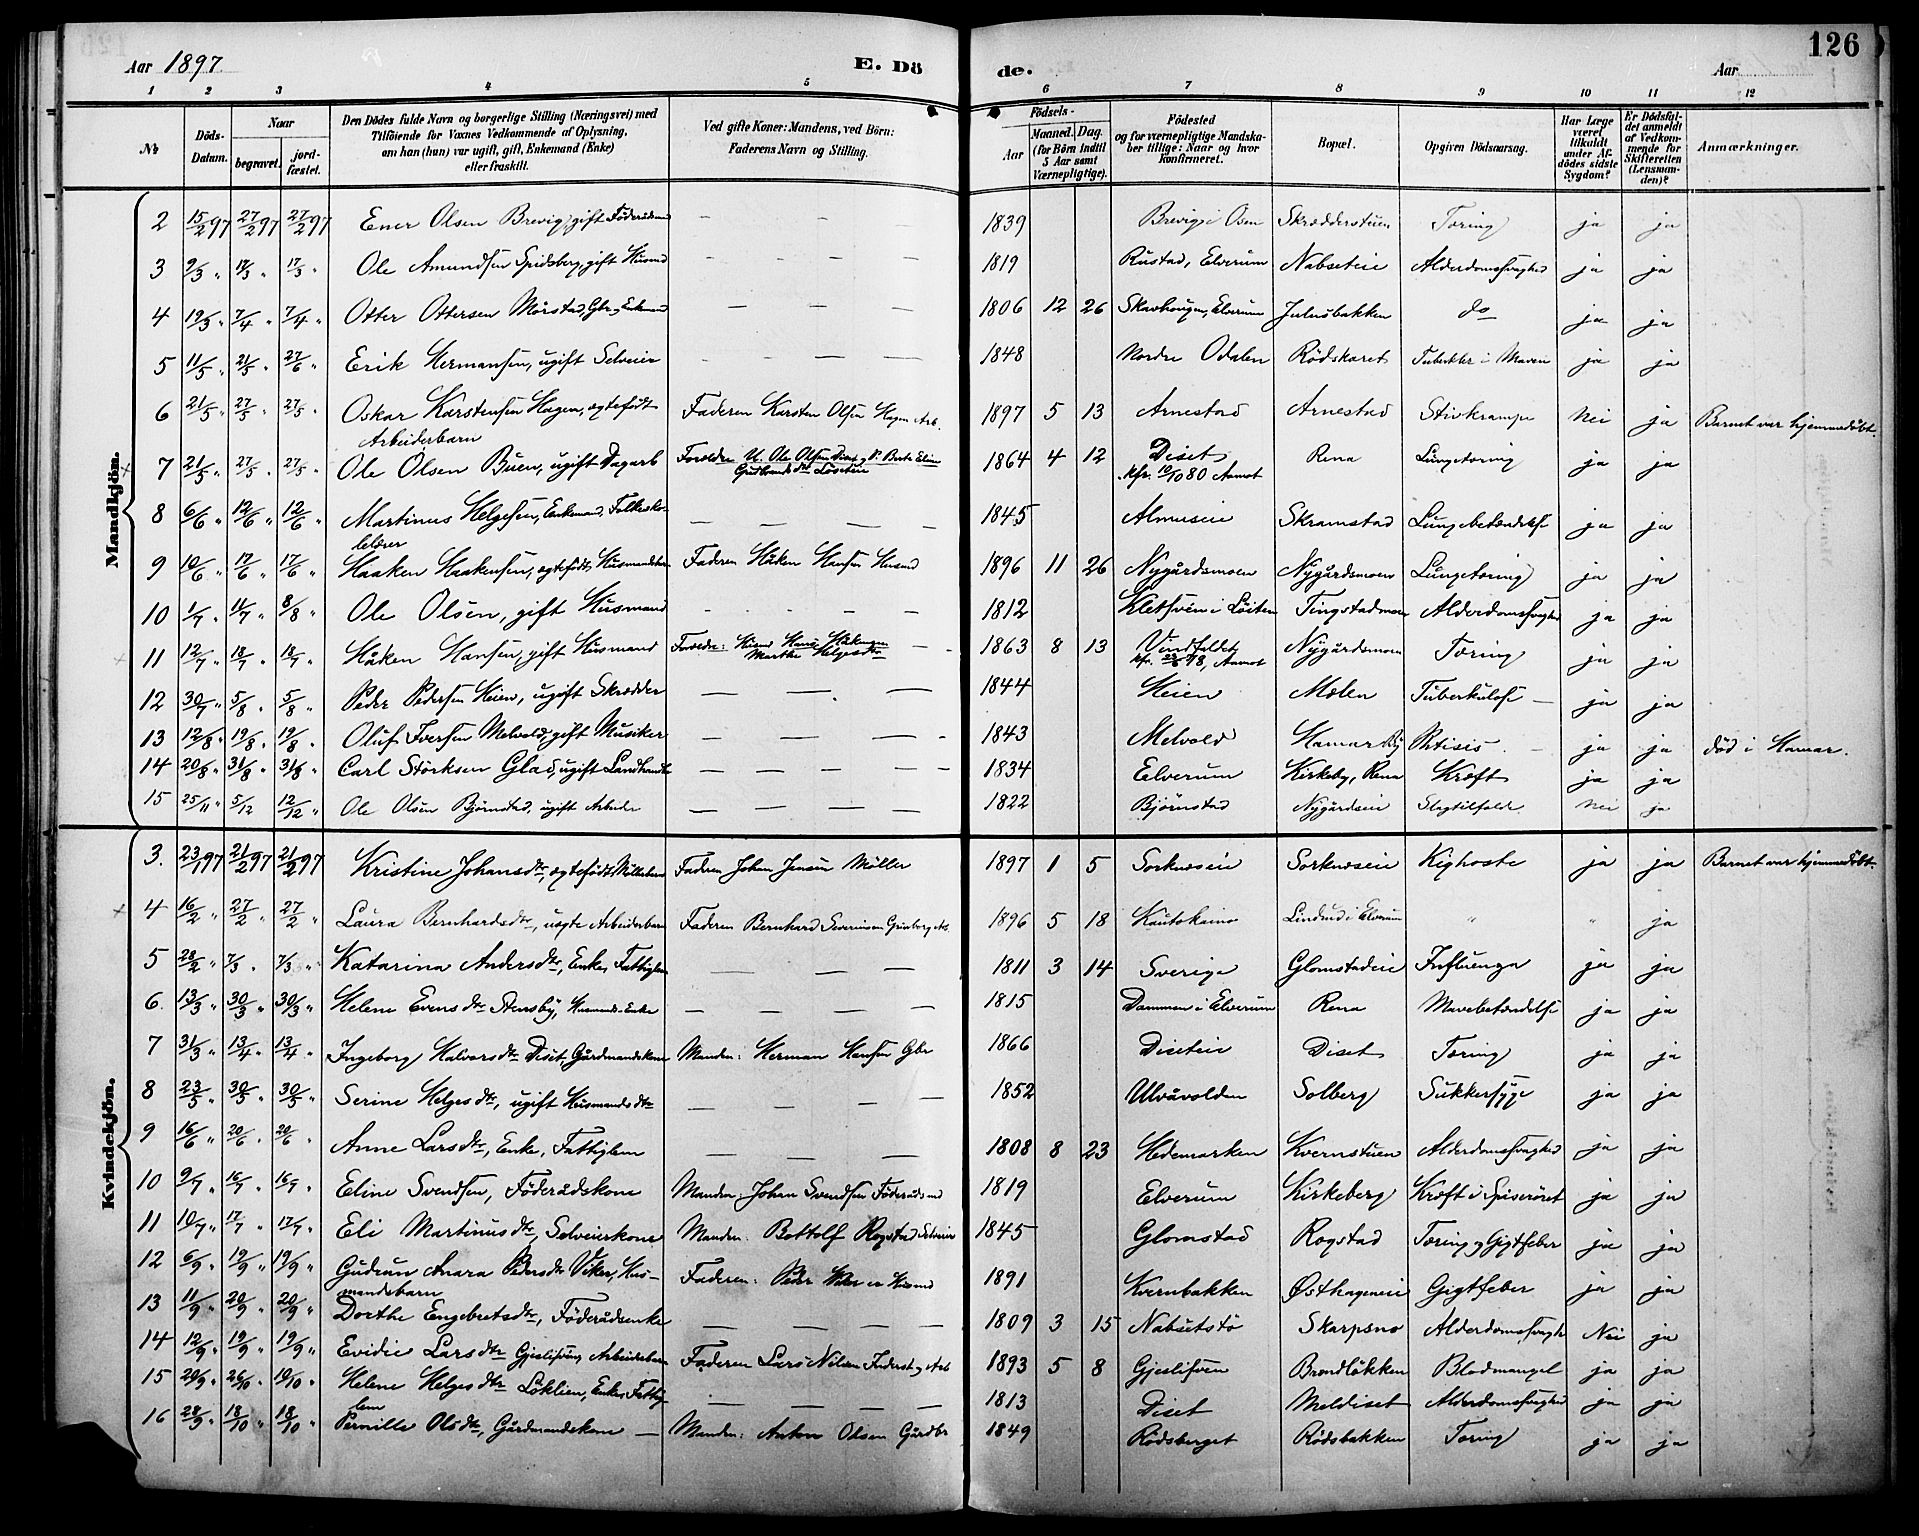 126
Aar 1897.
E. Dö
de.
Aar
1 2 3 4 5 6 7 8 9 10 11 12
№ Döds-Datum. Naar begravet. jordfæstet. Den Dödes fulde Navn og borgerlige Stilling (Næringsvei) med Tilföiende for Voxnes Vedkommende af Oplysning, om han (hun) var ugift, gift, Enkemand (Enke) eller fraskilt. Ved gifte Koner: Mandens, ved Börn: Faderens Navn og Stilling. Födsels- Aar Maaned. Dag. (for Börn indtil 5 Aar samt Værnepligtige). Födested og for værnepligtige Mandskaber tillige: Naar og hvor Konfirmeret. Bopæl. Opgiven Dödsaarsag. Har Læge været tilkaldt under Afdödes sidste Sygdom? Er Dödsfaldet anmeldt af Vedkommende for Skifteretten (Lensmanden)? Anmærkninger.
Mandkjön.
2 15/2 97 27/2 97 27/2 97 Ener Olsen Brevig, gift Föderådsmd — — 1839 Brevig i Osen Skrædderstuen Tæring ja ja
3 9/3 " 17/3 " 17/3 " Ole Amundsen Spidsberg, gift Husmd — — — 1819 Rustad, Elverum Nabseteie Alderdomssvaghed ja ja
4 19/3 " 7/4 " 7/4 " Otter Ottersen Mörstad, Gbr., Enkemand — — — 1806 12 26 Skavhougen, Elverum Julusbakken do ja ja
5 11/5 " 21/5 " 27/6 " Erik Hermansen, ugift Selveier — — — 1848 Nordre Odalen Rödskæret Tuberkler i Maven ja ja
6 21/5 " 27/5 " 27/5 " Oskar Karstensen Hagen, ægtefödt Arbeiderbarn Faderen Karsten Olsen Hagen Arb. 1897 5 13 Arnestad Arnestad Stivkrampe Nei ja Barnet var hjemmedöbt.
7 21/5 " 27/5 " 27/5 " Ole Olsen Buen, ugift Dagarb Forældre U. Ole Olsen Diset og P. Berte Eline Gudbrandsdtr Löseteie 1864 4 12 Diset kfr. 10/10 80 Aamot Rena Lungetæring ja ja
8 6/6 " 12/6 " 12/6 " Martinus Helgesen, Enkemand, Folkeskolelærer — — — 1845 Almuseie Skramstad Lungebetændelse ja ja
9 10/6 " 17/6 " 17/6 " Haaken Haakensen, ægtefödt Husmandsbarn Faderen Håken Hansen Husmd 1896 11 26 Nygårdsmoen Nygårdsmoen Lungetæring ja ja
10 1/7 " 11/7 " 8/8 " Ole Olsen, gift Husmand — — — 1812 Kletsven i Löiten Tingstadmoen Alderdomssvaghed ja ja
11 12/7 " 18/7 " 18/7 " Håken Hansen, gift Husmand Forældre: Husmd Hans Håkensen Marthe Helgesdtr 1863 8 13 Vindfaldet kfr. 78, Aamot Nygårdsmoen Tæring ja ja
12 30/7 " 5/8 " 5/8 " Peder Pedersen Heien, ugift Skrædder — — — 1844 Heien Mælen Tuberkulose — ja ja
13 12/8 " 19/8 " 19/8 " Oluf Iversen Melvold, gift Musiker — — — 1843 Melvold Hamar By Phtisis — ja ja död i Hamar.
14 20/8 " 31/8 " 31/8 " Carl Störksen Glad, ugift Landhandler — — — 1834 Elverum Kirkeby, Rena Kræft ja ja
15 25/11 " 5/12 12/12 " Ole Olsen Björnstad, ugift Arbeider — — — 1822 Björnstad Nygårdseie Slagtilfælde Nei ja
Kvindekjön.
3. 23/1 97 21/2 97 21/2 97 Kristine Johansdtr, ægtefödt Möllerbarn Faderen Johan Jensen Möller 1897 1 5 Sorknæseie Sorknæseie Kighoste ja ja Barnet var hjemmedöbt.
4 16/2 " 27/2 " 27/2 " Laura Bernhardsdtr, uægte Arbeiderbarn Faderen Bernhard Severinsen Grinberg Arb. 1896 5 18 Kautokeino Lindrud i Elverum " " ja
5 28/2 " 7/3 " 7/3 " Katarina Andersdtr, Enke, Fattiglem — — — 1811 3 14 Sverige Glomstadeie Influenza ja ja
6. 13/3 " 30/3 " 30/3 " Helene Evensdtr Stensby, Husmands-Enke — — — 1815 Dammen i Elverum Rena Mavebetændelse ja ja
7 31/3 " 13/4 " 13/4 " Ingeborg Halvorsdtr Diset, Gårdmandskone Manden: Herman Hansen Gbr 1866 Diseteie Diset Tæring ja ja
8 23/5 " 30/5 " 30/5 " Serine Helgesdtr, ugift Husmandsdtr — — — 1852 Ulvåvolden Solberg Sukkersyge ja ja
9 16/6 " 20/6 " 20/6 " Anne Larsdtr, Enke, Fattiglem — — — 1808 8 23 Hedemarken Kvernstuen Alderdomssvaghed ja ja
10 9/7 " 16/7 " 16/7 " Eline Svendsen, Föderådskone Manden: Johan Svendsen Föderådsmd 1819 Elverum Kirkeberg Kræft i Spiseröret ja ja
11 10/7 " 17/7 " 17/7 " Eli Martinusdtr, Selveierkone Manden: Bottolf Rogstad Selveier 1845 Glomstad Rogstad Tæring og Gigtfeber ja ja
12 6/9 " 19/9 " 19/9 " Gudrun Anara Pedersdtr Viker, Husmandsbarn Faderen: Peder Husmd 1891 Kvernbakken Østhageneie Gigtfeber ja ja
13 11/9 " 20/9 " 20/9 " Dorthe Engebretsdtr, Föderådsenke — — — 1809 3 15 Nabsetstö Skarpsno Alderdomssvagh Nei ja
14 12/9 " 19/9 " 19/9 " Evidie Larsdtr Gjeslifven, Arbeiderbarn Faderen Lars Nilsen Inderst og Arb 1893 5 8 Gjeslifven Brændlökken Blodmangel ja ja
15 20/9 " 26/10 " 10/10 " Helene Helgesdtr Löklien, Enke, Fattiglem — — — 1813 Diset Meldiset Alderdomssvaghed ja ja
16 28/9 " 18/10 " 18/10 " Pernille Olsdtr, Gårdmandskone — Manden: Anton Olsen Gårdbr 1849 Rödsberget Rödsbakken Tæring ja ja